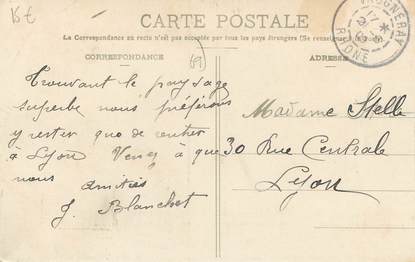 15€
CARTE POSTALE
La Correspondance au recto n'est pas acceptée par tous les pays étrangers (Se renseigner
CORRESPONDANCE
ADRESSE
(69)
VAUGNERAY
RHONE
Trouvant le paysage
superbe nous préférons
y rester que de rentrer
à Lyon Venez à que
nous
amitiés
J. Blanchet
Madame Stelle
30 Rue Centrale
Lyon